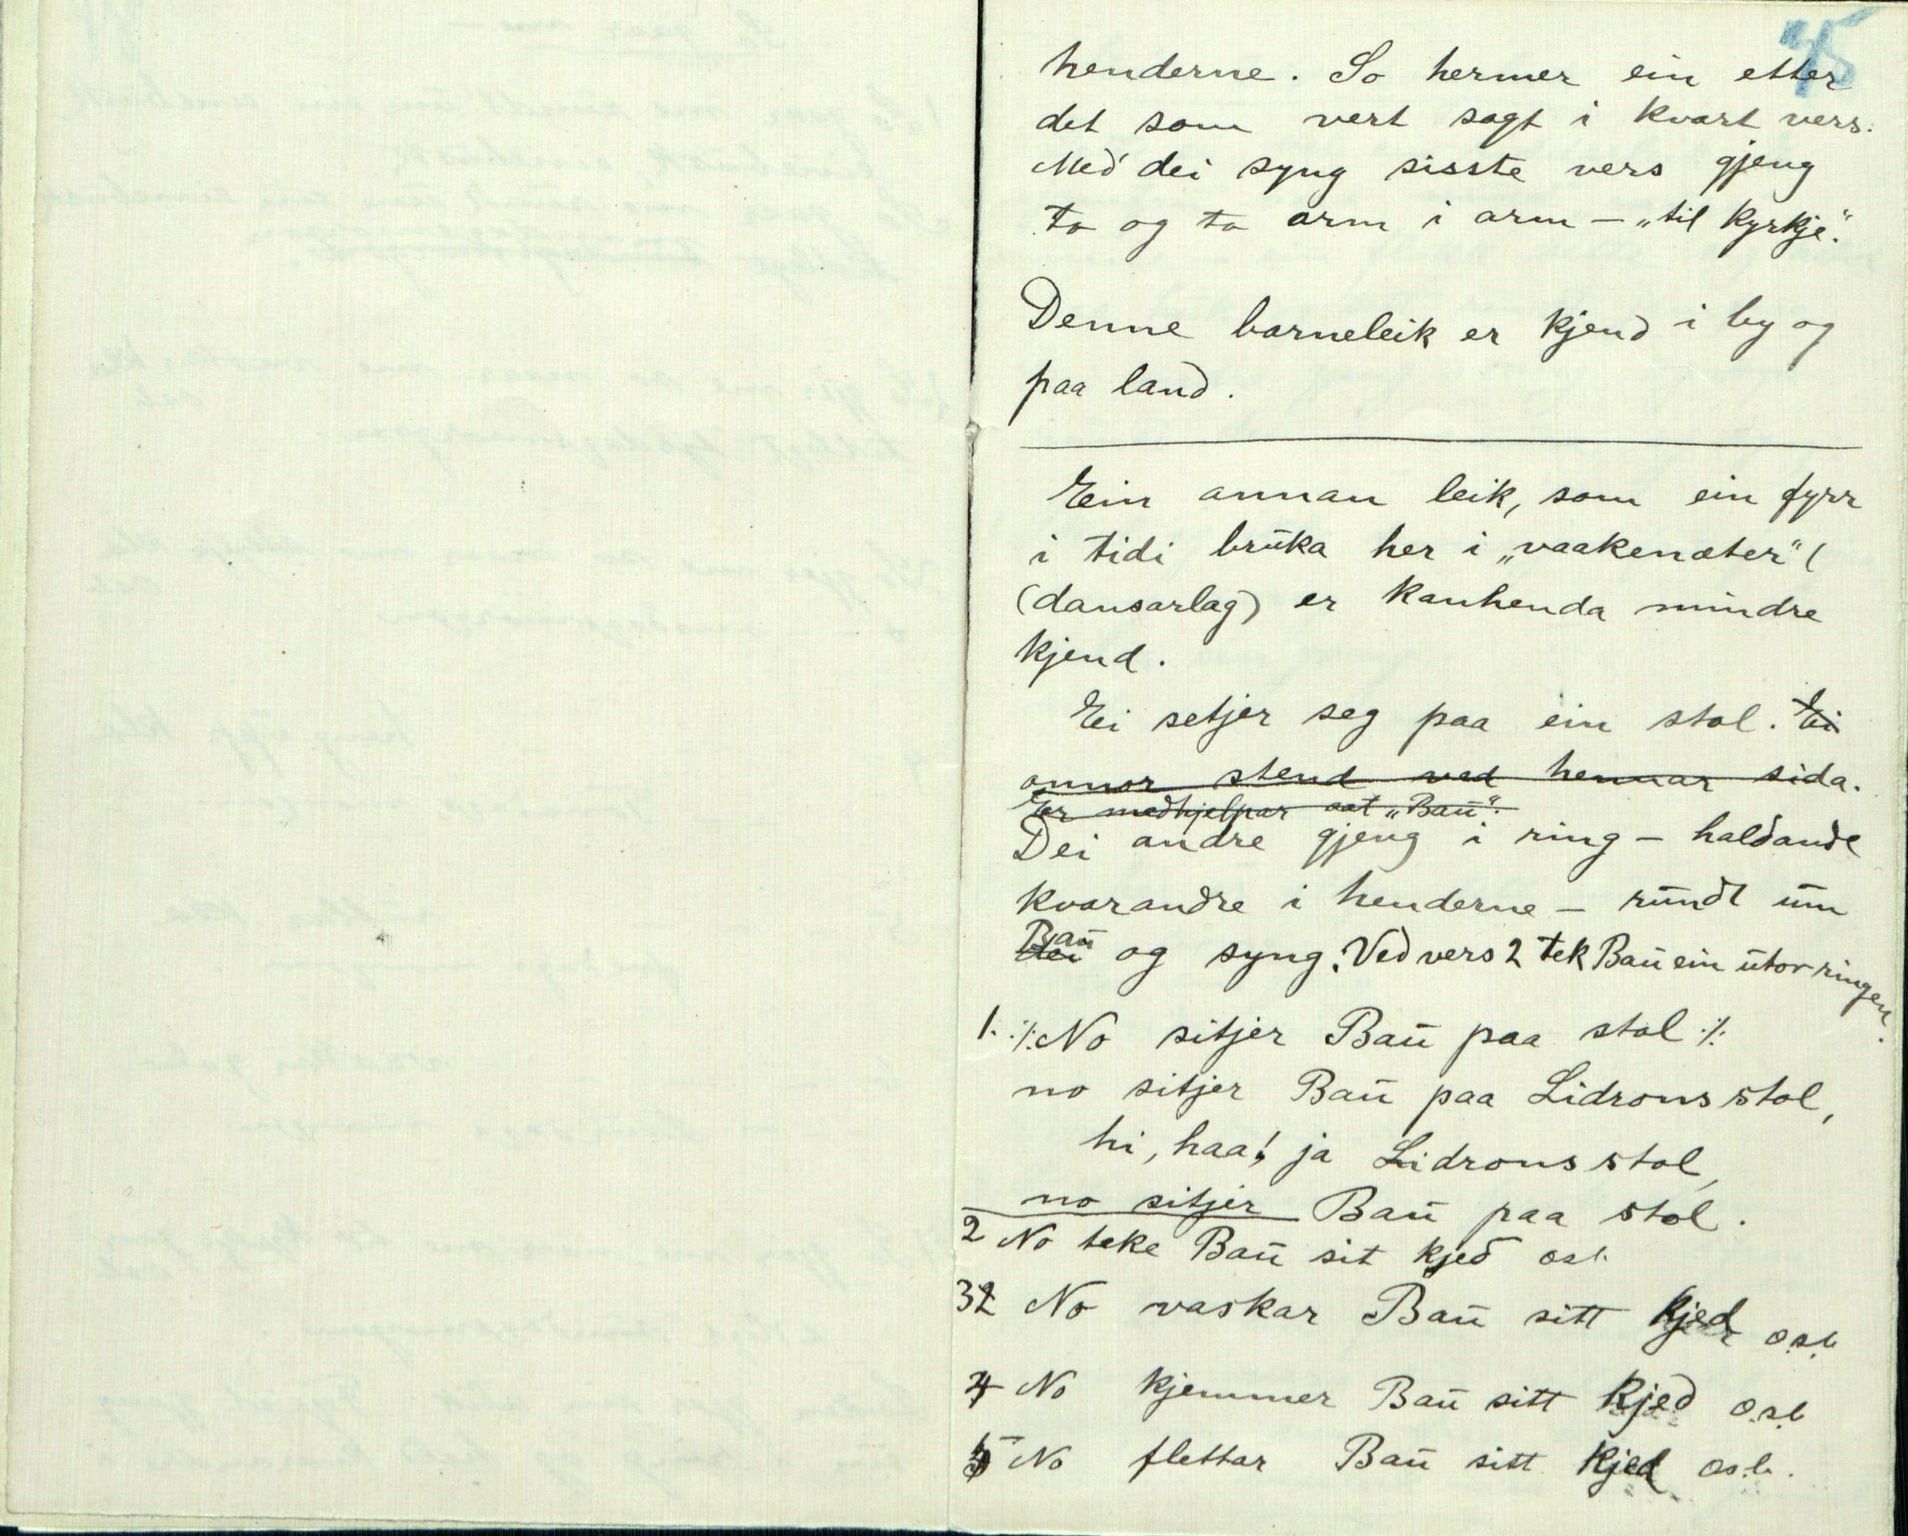 45
henderne. So hermer ein etter
det som vert sagt i kvart vers.
Med dei syng sisste vers gjeng
to og to arm i arm — „til kyrkje".
Denne barneleik er kjend i by og
paa land.
Ein annan leik, som ein fyrr
i tidi bruka her i „vaakenæter" (
(dansarlag) er kanhenda mindre
kjend.
Ei setjer seg paa ein stol. Ei
onnor stend ved hennar sida.
Er medhjelpar aat „Bau".
Dei andre gjeng i ring — haldande
kvarandre i henderne — rundt um
Bau
dei og syng. Ved vers 2 tek Bau ein utor ringen.
1. :/: No sitjer Bau paa stol :/:
no sitjer Bau paa Lidrons stol,
hi, haa! ja Lidrons stol,
no sitjer Bau paa stol.
2 No teke Bau sit kjed osb.
32 No vaskar Bau sitt kjed osb.
4 No kjemmer Bau sitt kjed osb
5 No flettar Bau sitt kjed osb.